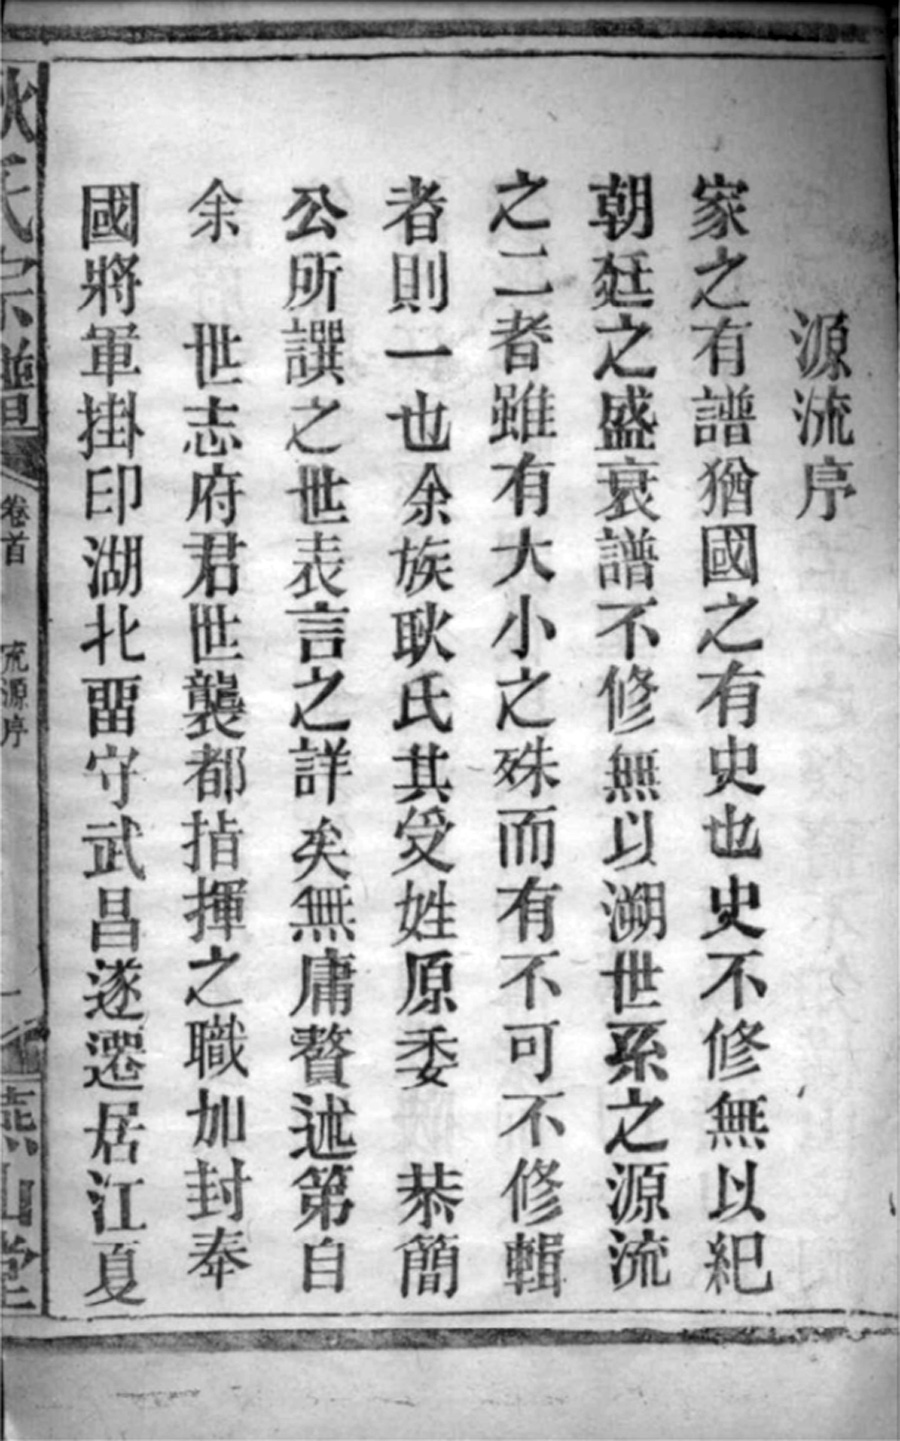 源流序
家之有譜猶國之有史也史不修無以紀
朝廷之盛衰譜不修無以溯世系之源流
之二者雖有大小之殊而有不可不修輯
者則一也余族耿氏其受姓原委　恭簡
公所譔之世表言之詳矣無庸贅述第自
余　世志府君世襲都指揮之職加封奉
國將軍掛印湖北畱守武昌遂遷居江夏
耿氏宗譜
卷首
流源序
一
燕山堂